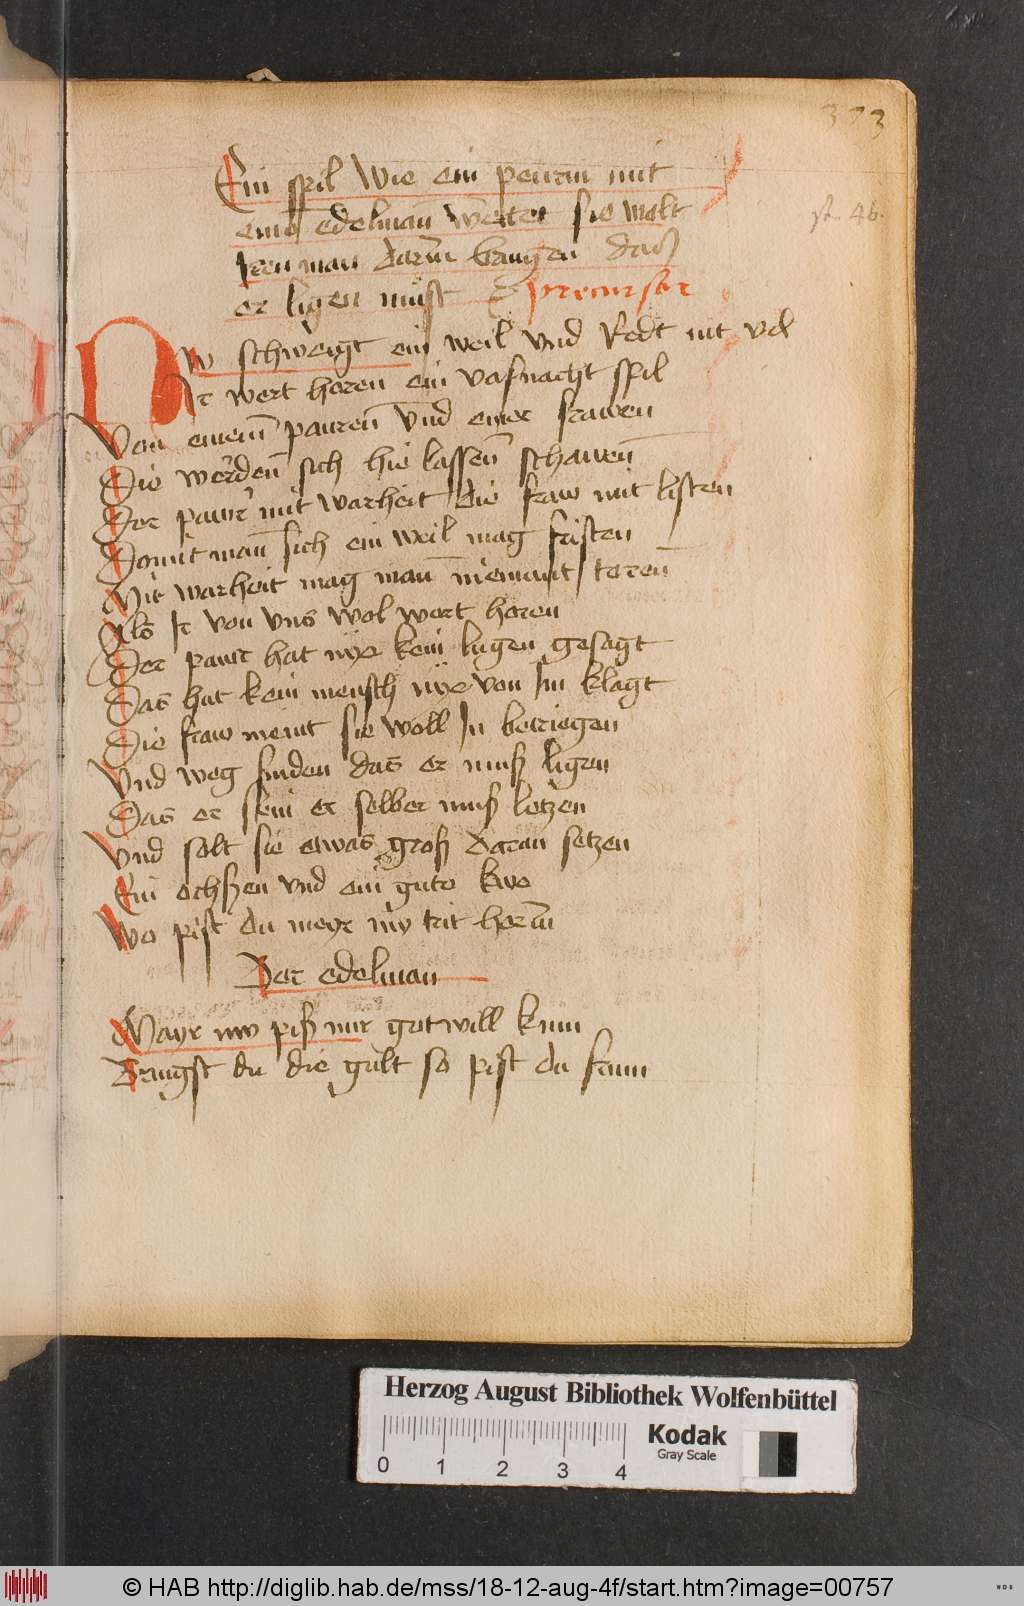 373
Ein spil wie ein peurin mit
eim edelman wettet sie wolt
Iren man darum brangen das
er ligen müst Precursor
46.
Nw schweigt ein weil vnd Redt nit vil
Ir wert horen ein vasnacht spil
Von einem pauren vnd einer frawen
Die werden sich hie lassen schawen
Der pawr mit warheit die fraw mit listen
Domit man sich ein weil mag fristen
Mit warheit mag man niemant toren
Als Ir von vns wol wert horen
Der pawr hat nye kein lugen gesagt
Das hat kein mensch nye von Im klagt
Die fraw meint sie woll In betriegen
Vnd weg finden das er muß ligen
Das er sein er selber muß letzen
Vnd solt sie etwas groß daran setzen
Ein ochßen vnd ein gute kwe
Wo pist du meyr nw trit
Der edelman
Mayr nw piß mir got will kum
Brengst du die gült so pist du frum
Herzog August Bibliothek Wolfenbüttel
Kodak
Gray Scale
0 1 2 3 4
© HAB http://diglib.hab.de/mss/18-12-aug-4f/start.htm?image=00757